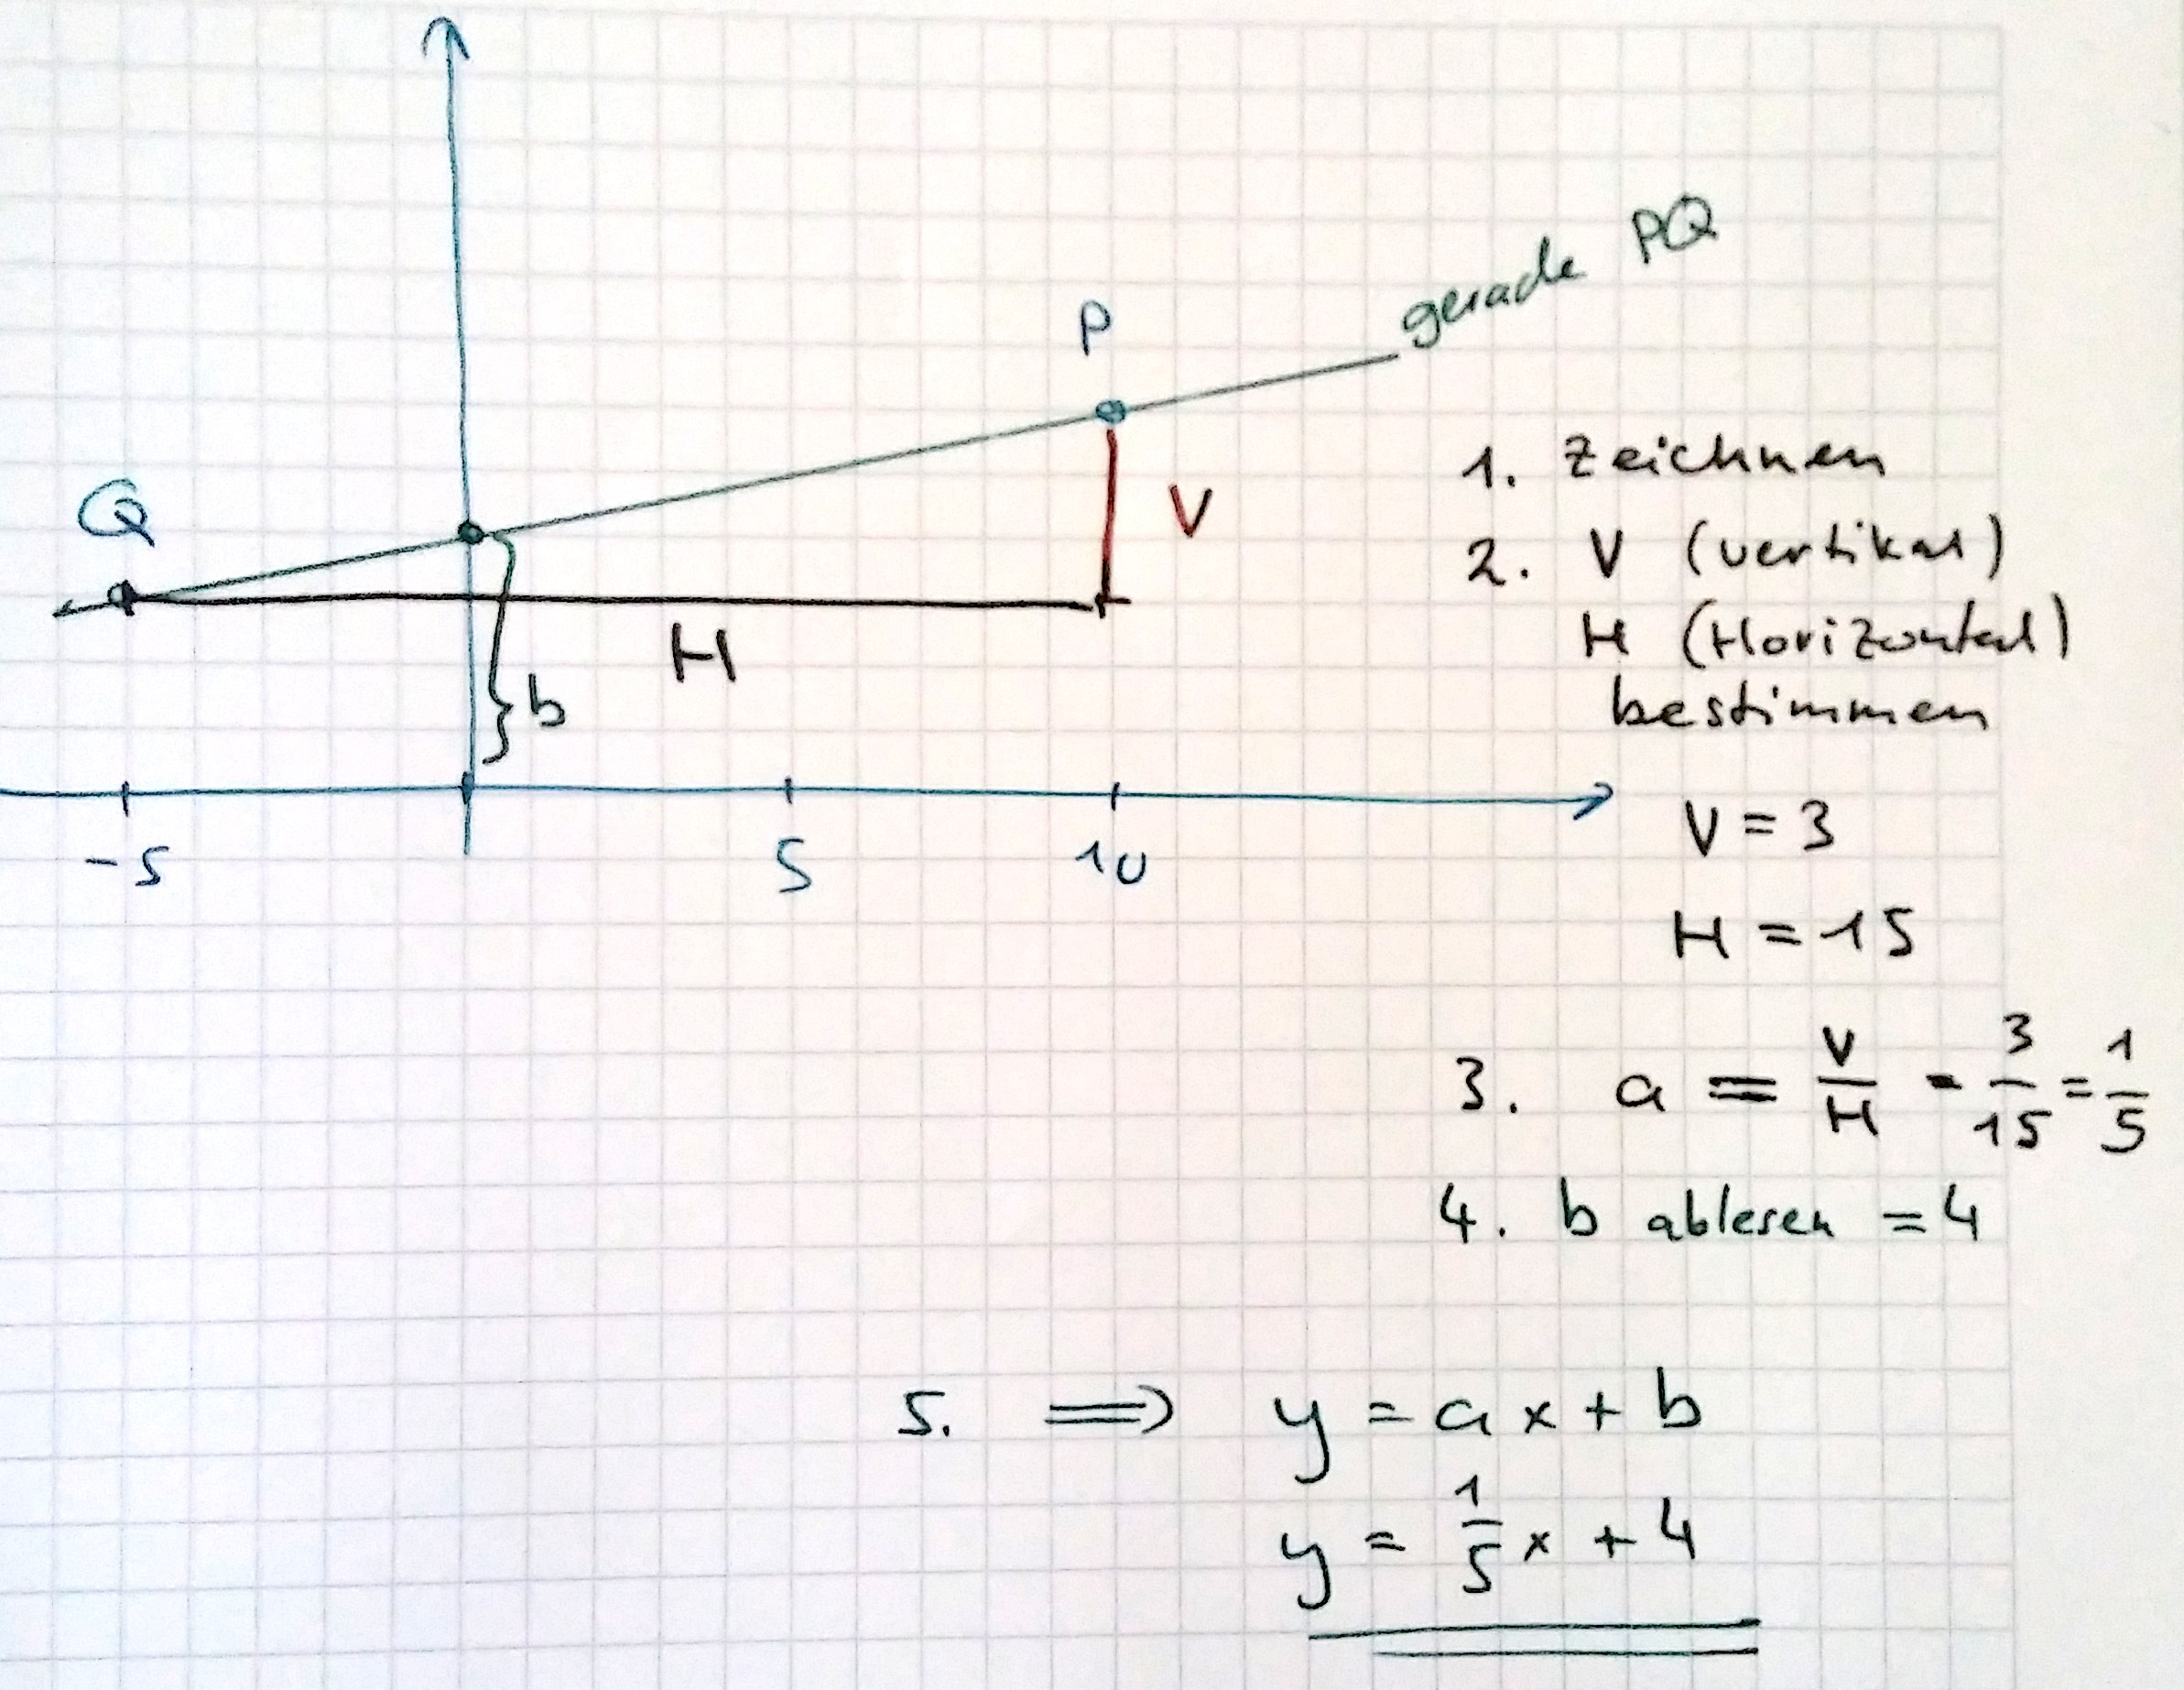 Q
P
gerade PQ
V
b
H
-5
5
10
1. Zeichnen
2. V (vertikal)
H (Horizontal)
bestimmen
V = 3
H = 15
3. a = V/H = 3/15 = 1/5
4. b ablesen = 4
5. ⇒ y = ax + b
y = 1/5 x + 4